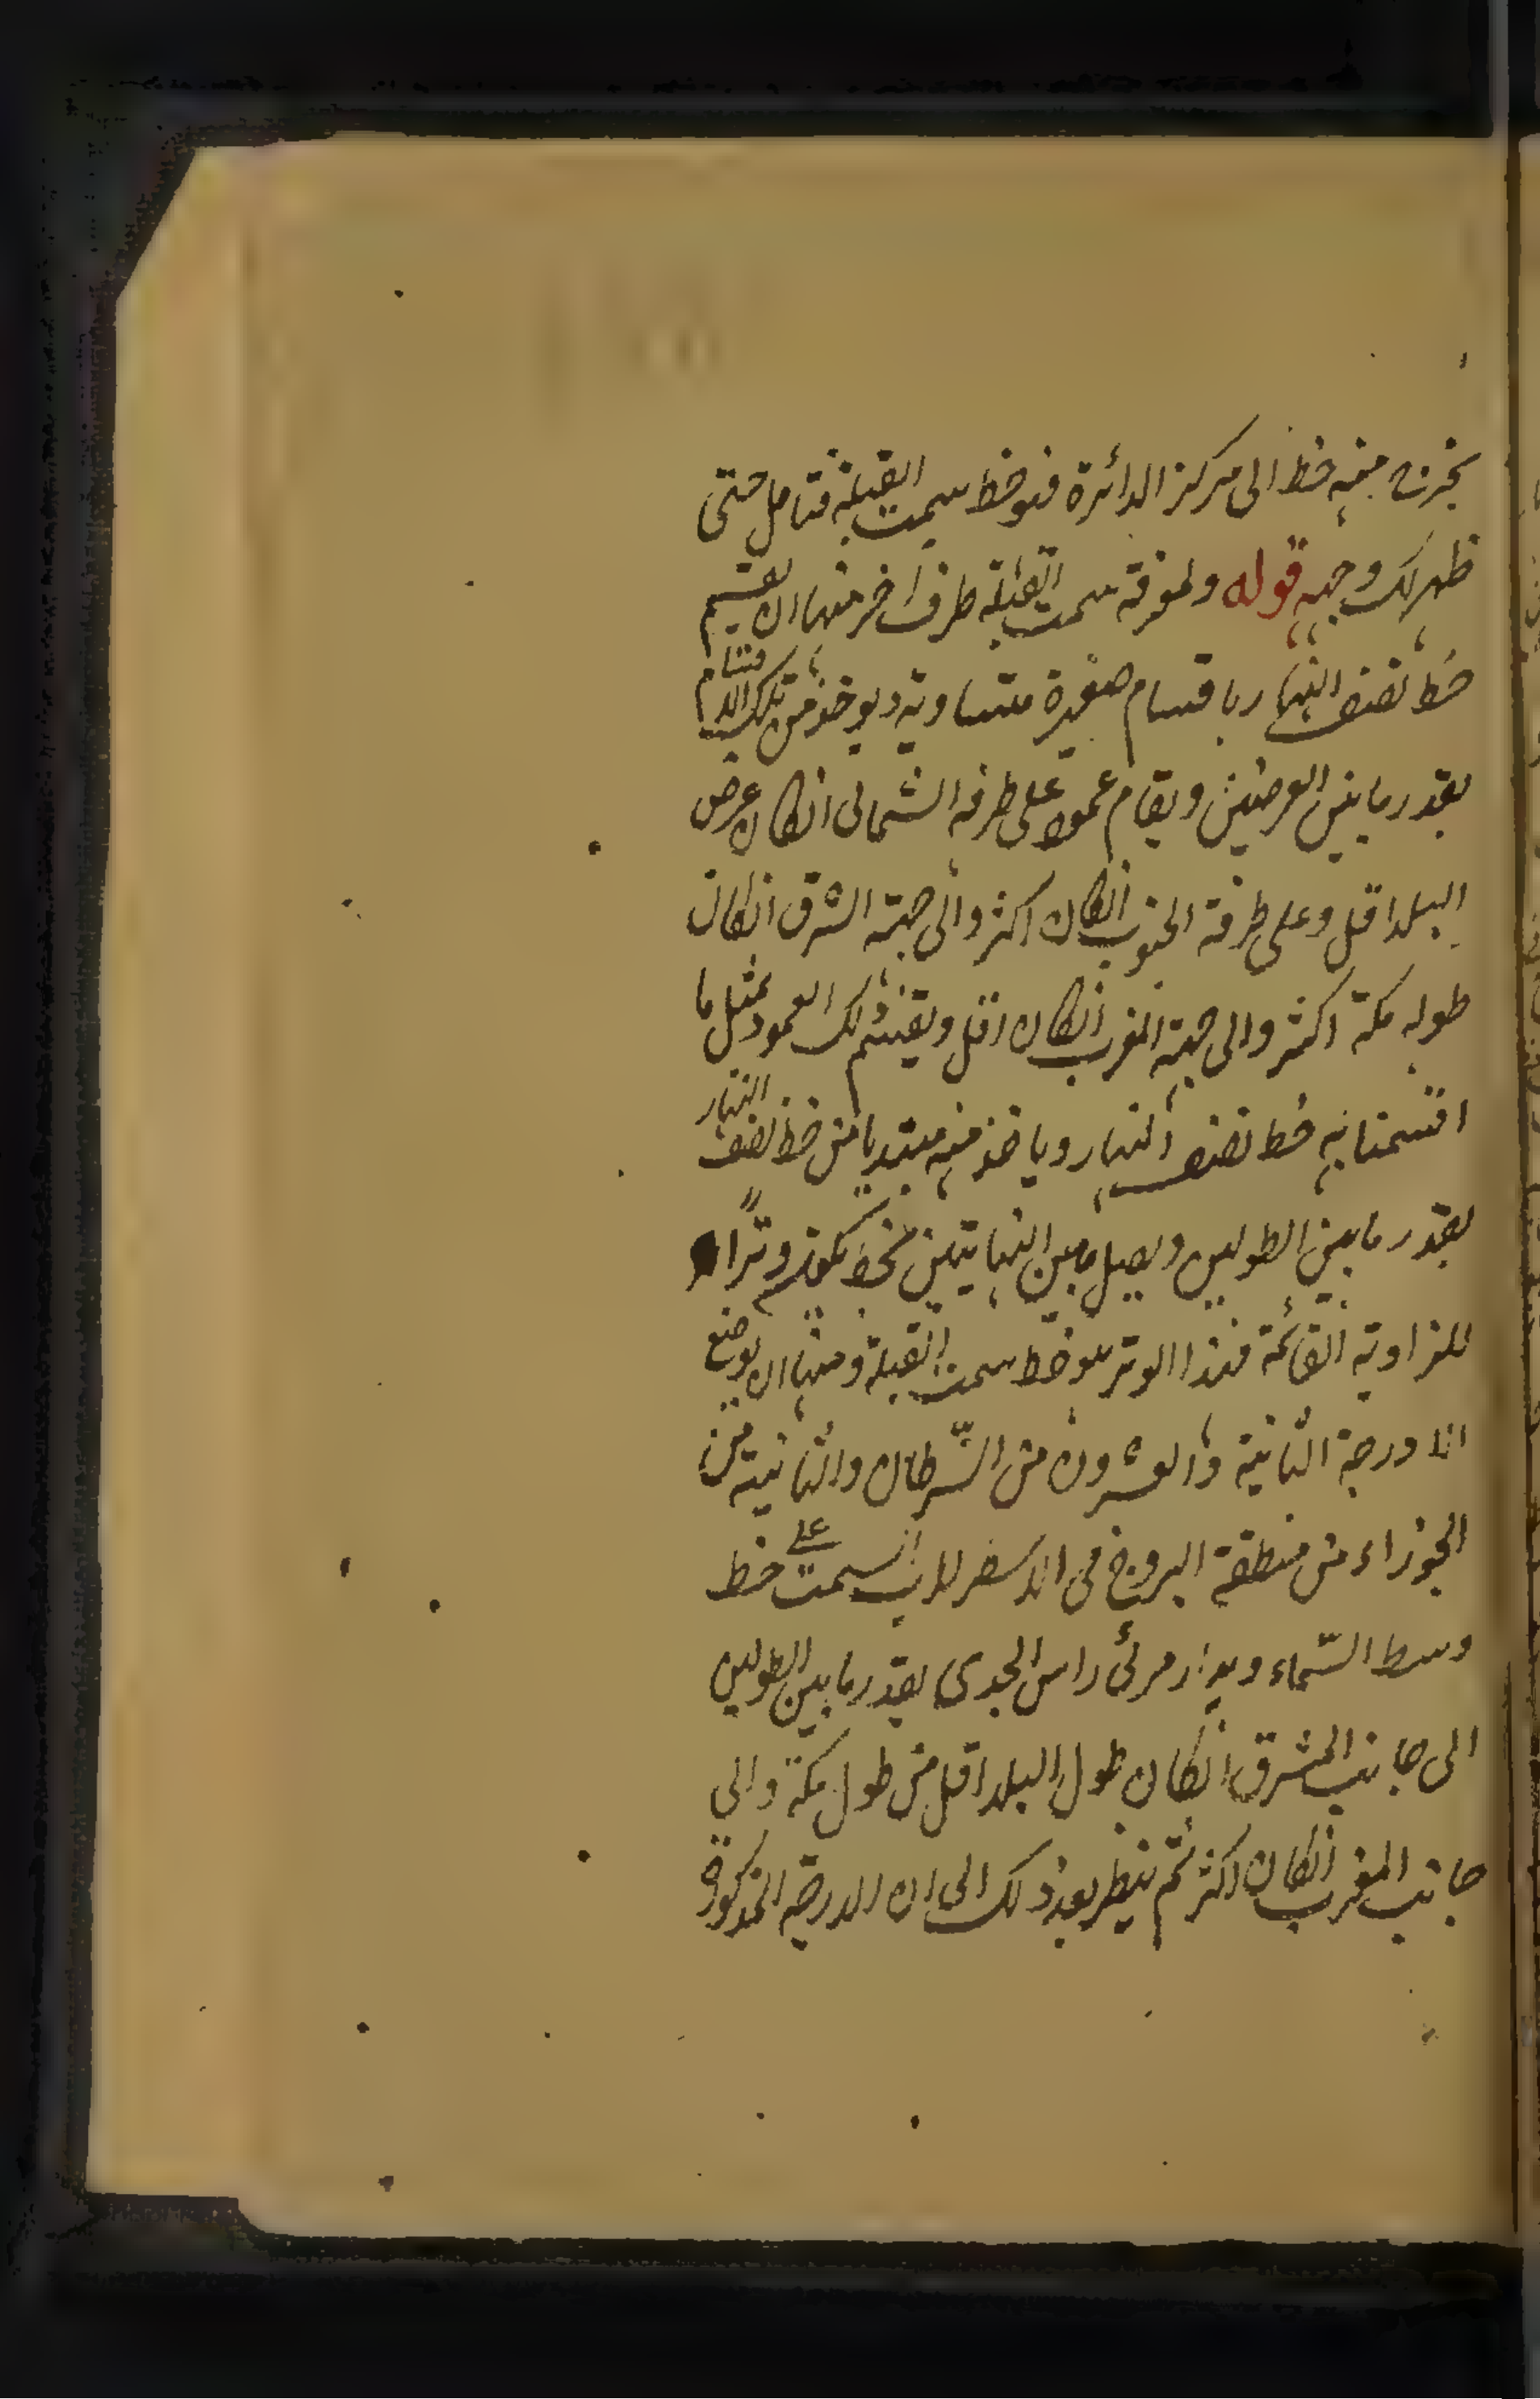 يخرج منه خط الى مركز الدائرة فهو خط سمت القبلة فتامل حتى
ظهر لك وجهه قوله ولمعرفة سمت القبلة طرف اخر منها ان يقسم
خط نصف النهار باقسام صغيرة متساوية ويوخذ من تلك الاقسام
بقدر ما بين العرضين ويقام عمود على طرفه الشمالى انكان عرض
البلد اقل وعلى طرفه الجنوب انكان اكثر والى جهة الشرق انكان
طوله مكة اكثر والى جهة المغرب انكان اقل ويقسم ذلك العمود بمثل ما
اقسمنا به خط نصف النهار وياخذ منه مبتديا من خط نصف النهار
بقدر ما بين الطولين ويصل ما بين النهايتين بخط يكون وترًا
للزاوية القائمة فهذا الوتر هو خط سمت القبلة ومنها ان يوضع
الدرجة الثانية والعشرون من السّرطان والثانية من
الجوزاء من منطقة البروج فى الاسطرلاب السمت على خط
وسط السّماء ويدار مرئ راس الجدى بقدر ما بين الطولين
الى جانب المشرق انكان طول البلد اقل من طول مكة والى
جانب المغرب انكان اكثر ثم ينظر بعد ذلك الى ان الدرجة المذكورة